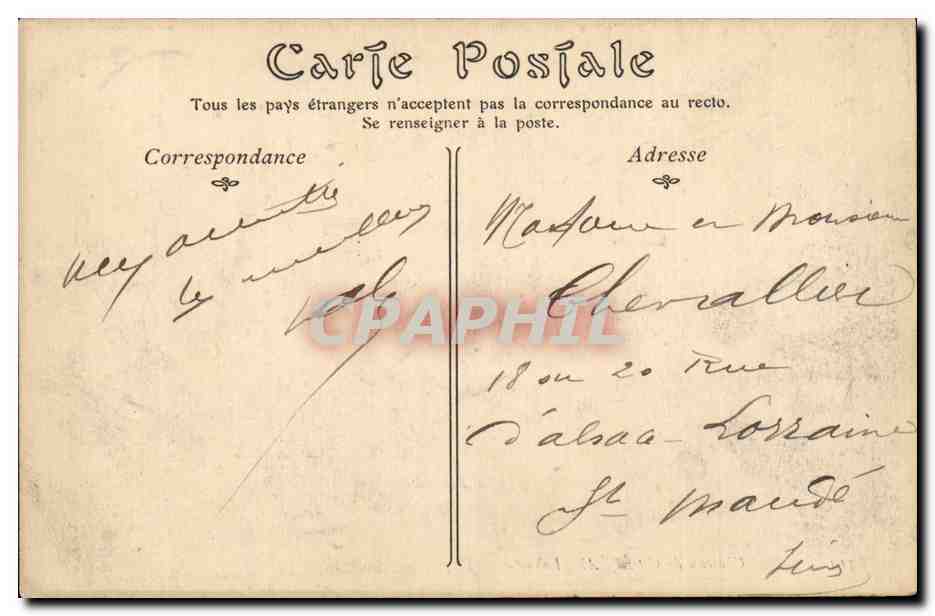 Carte Postale
Tous les pays étrangers n'acceptent pas la correspondance au recto.
Se renseigner à la poste.
Correspondance
Adresse
amitié
les meilleurs
Madame et Monsieur
Chevallier
18 ou 20 Rue
d'alsace-Lorraine
St Mandé
Seine
CPAPHIL